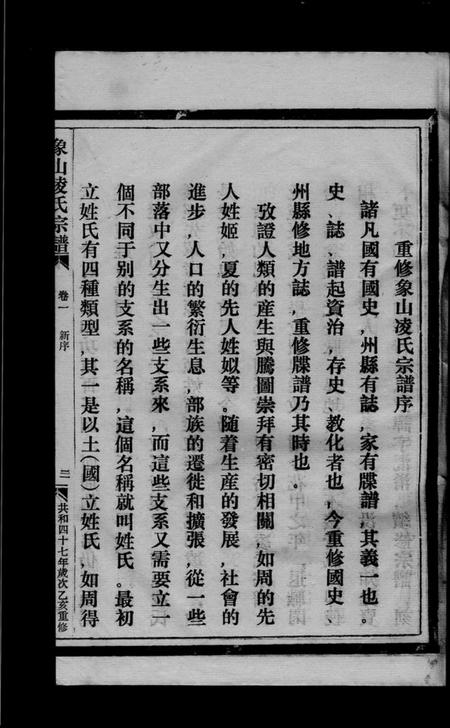 重修象山凌氏宗譜序
諸凡國有國史，州縣有誌，家有牒譜，其義一也。
史、誌、譜起資治，存史、教化者也，今重修國史、
州縣修地方誌，重修牒譜乃其時也。
攷證人類的産生與騰圖崇拜有密切相關，如周的先
人姓姬，夏的先人姓姒等。随着生産的發展，社會的
進步，人口的繁衍生息，部族的遷徙和擴張，從一些
部落中又分生出一些支系來，而這些支系又需要立一
個不同于别的支系的名稱，這個名稱就叫姓氏。最初
立姓氏有四種類型，其一是以土（國）立姓氏，如周得
象山凌氏宗譜
卷一
新序
三一
共和四十七年歲次乙亥重修